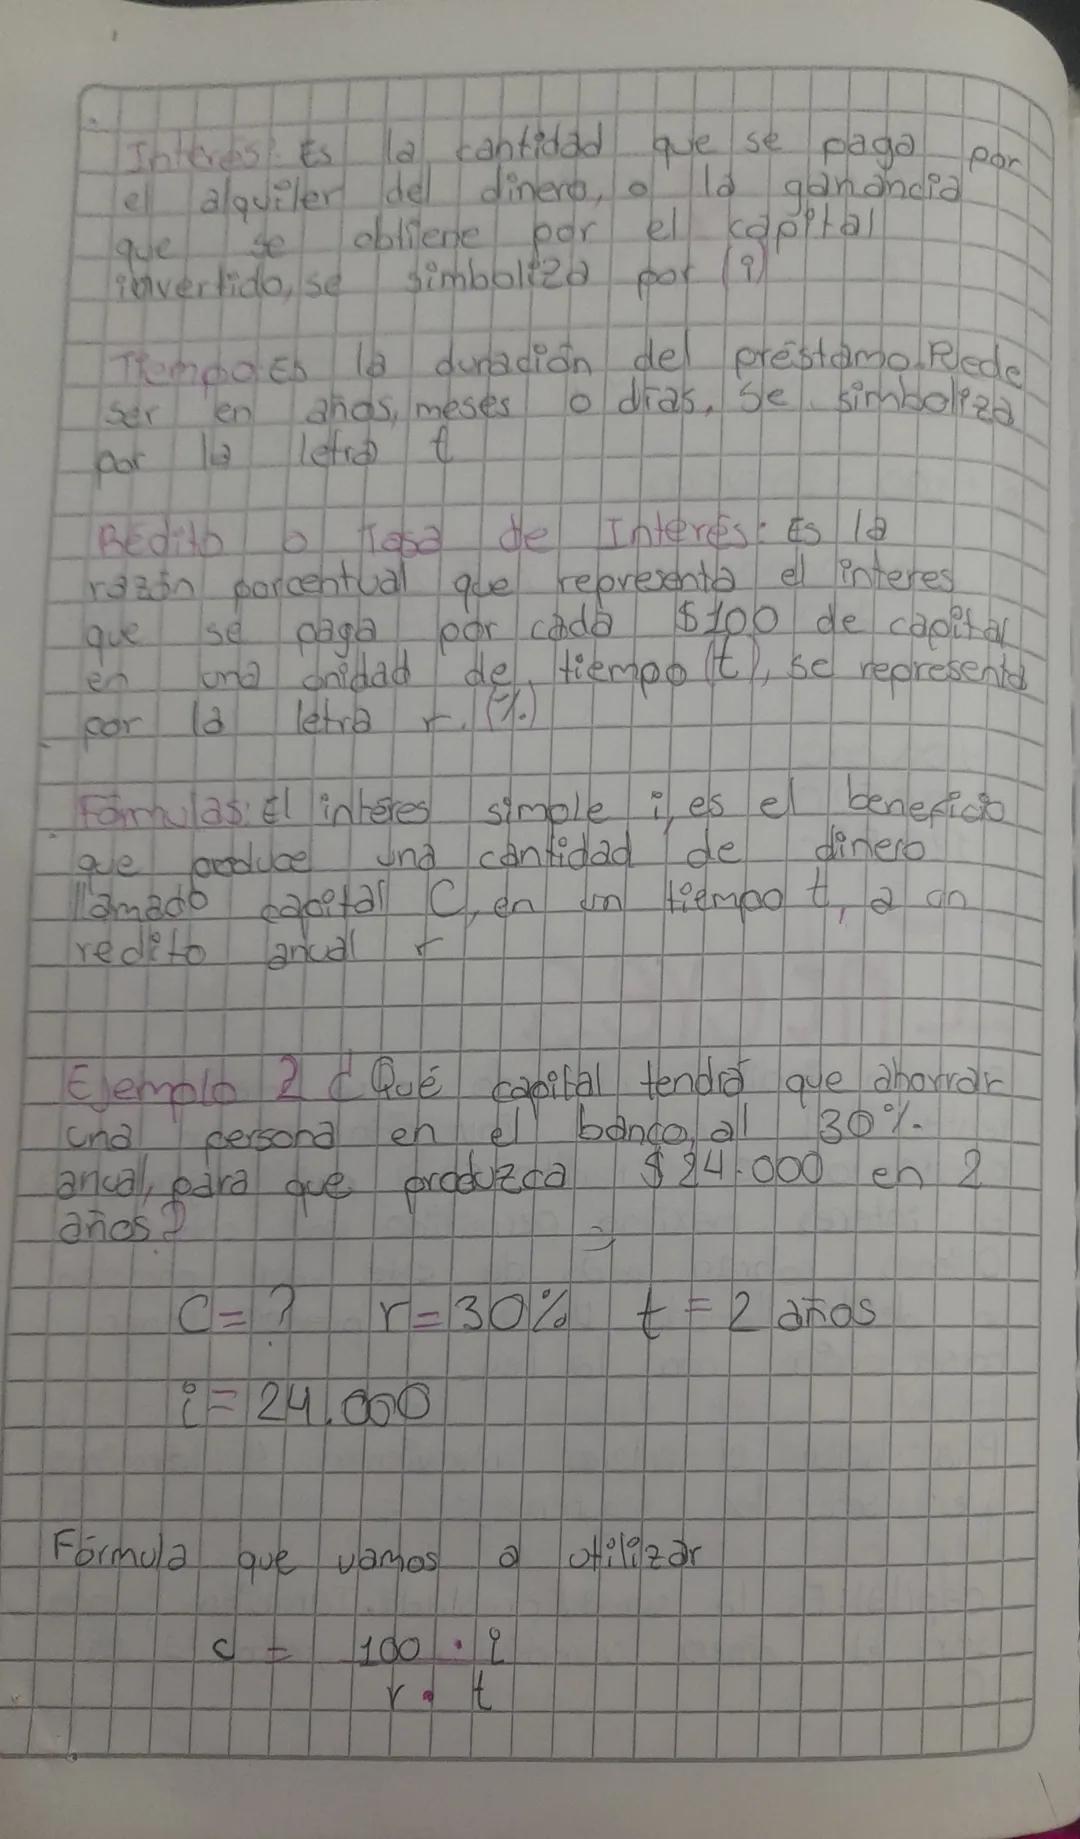 Interés: Es la cantidad que se paga por
el alquiler del dinero, o la ganancia
que se obtiene por el capital
invertido, se simboliza por (i)
Tiempo Es la duración del préstamo. Puede
ser en años, meses o dias, se simboliza
por la letra t
Rédito o Tasa de Interés: Es la
razón porcentual que representa el interes
que se paga por cada $100 de capital
en una unidad de tiempo (t), se representa
por la letra r. (%)
Fórmulas: El interes simple i, es el beneficio
que produce una cantidad de dinero
llamado capital C, en un tiempo t, a un
redito anual r
Ejemplo 2 ¿Qué capital tendrá que ahorrar
una persona en el banco, al 30%
anual, para que produzca $24.000 en 2
años?
C=? r=30% t=2 años
i=24.000
Fórmula que vamos a utilizar
c = 100 . i
r . t